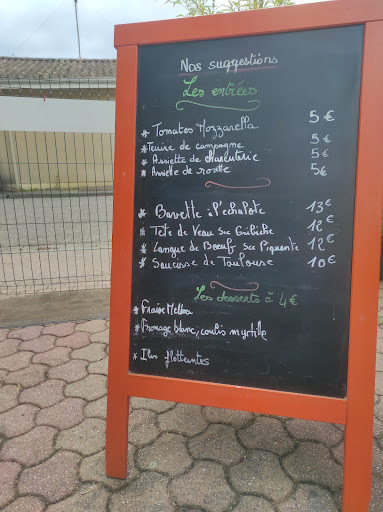 Nos suggestions
Les entrées
* Tomates Mozzarella 5 €
* Terrine de campagne 5 €
* Assiette de charcuterie 5 €
* Assiette de rosette 5 €
* Bavette à l'échalote 13 €
* Tete de Veau sce Gribiche 12 €
* Langue de Boeuf sce Piquante 12 €
* Saucisse de Toulouse 10 €
Les desserts à 4 €
* Fraise Melba
* Fromage blanc, coulis myrtille
* Iles flottantes